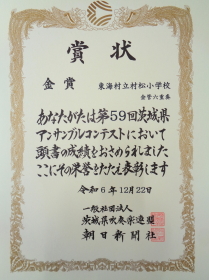 賞状
金賞 東海村立村松小学校
金管六重奏
あなたがたは第59回茨城県
アンサンブルコンテストにおいて
頭書の成績をおさめられました
ここにその栄誉をたたえ表彰します
令和6年12月22日
一般社団法人
茨城県吹奏楽連盟
朝日新聞社